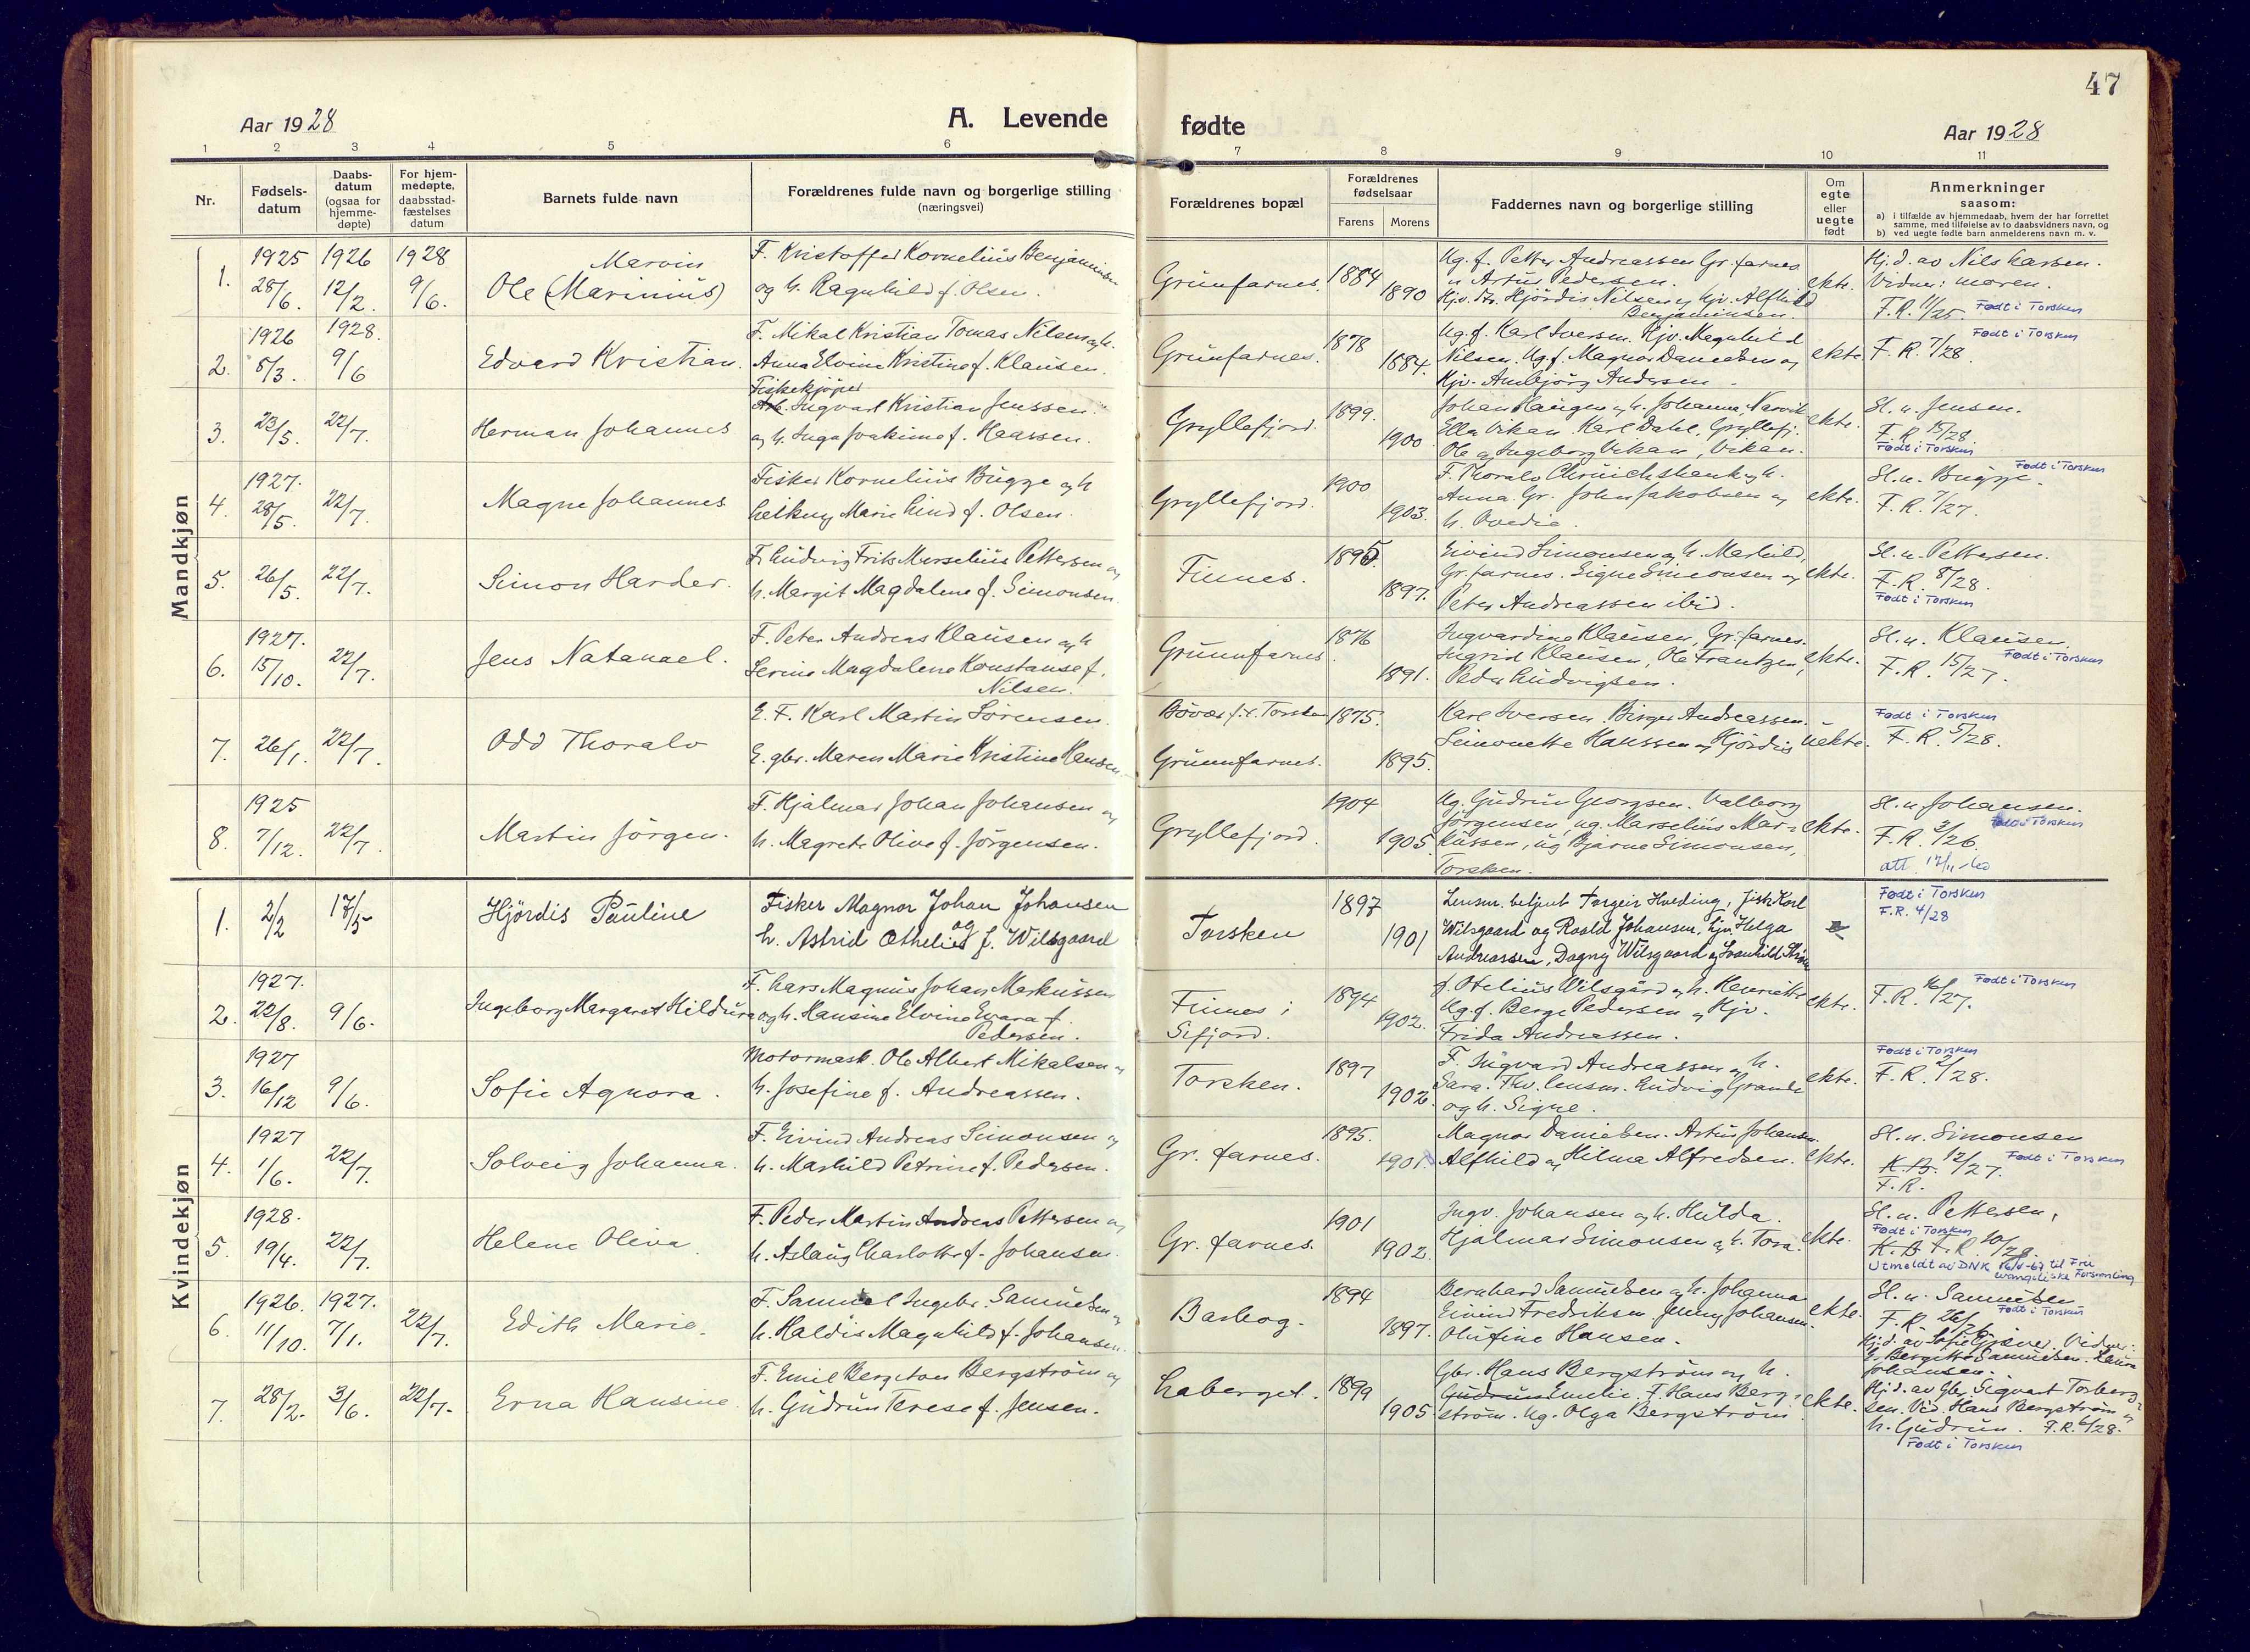 47
Aar 1928
A. Levende
fødte
Aar 1928
1 2 3 4 5 6 7 8 9 10 11
Nr.
Fødsels-
datum
Daabs-
datum
(ogsaa for
hjemme-
døpte)
For hjem-
medøpte,
daabsstad-
fæstelses
datum
Barnets fulde navn
Forældrenes fulde navn og borgerlige stilling
(næringsvei)
Forældrenes bopæl
Forældrenes
fødselsaar
Farens Morens
Faddernes navn og borgerlige stilling
Om
egte
eller
uegte
født
Anmerkninger
saasom:
a) i tilfælde av hjemmedaab, hvem der har forrettet
samme, med tilføielse av to daabsvidners navn, og
b) ved uegte fødte barn anmelderens navn m. v.
Mandkjøn
1. 1925 28/6. 1926 12/2. 1928 9/6.
Marvin
Ole (Marinius)
F. Kristoffer Kornelius Benjaminsen
og h. Ragnhild f. Olsen.
Grunfarnes. 1884 1890
Ug. f. Petter Andreassen Gr. farnes
Artur Pedersen.
Hjørdis Nilsen og hjv. Alfhild
Benjaminsen.
ekte.
Hj. d. av Nils Larsen.
Vidner: moren.
F.R. 11/25. Født i Torsken
2. 1926 8/3. 1928. 9/6
Edvard Kristian.
F. Mikal Kristian Tomas Nilsen og h.
Anna Elvine Kristine f. Klausen.
Grunfarnes. 1878 1884.
Ug. f. Karl Iversen. Hjv. Magnhild
Nilsen. Ug. f. Magnor Danielsen og
Hjv. Ambjørg Andersen.
ekte.
Født i Torsken
F.R. 7/28
3. 23/5. 22/7.
Herman Johannes
Fiskekjøper
Arb. Ingvart Kristian Jenssen
og h. Inga Joakime f. Haassen.
Gryllefjord. 1899. 1900
Johan Haugen og h. Johanna, Narvik
Ella Vikan. Karl Dahl, Gryllefj.
Ole og Ingeborg Vikan, Vikan.
ekte.
Sl. n. Jensen.
F.R. 15/28
Født i Torsken
4. 1927. 28/5. 22/7.
Magne Johannes
Fisker Kornelius Bugge og h
Marie Lind f. Olsen.
Gryllefjord. 1900 1903.
F. Thoralv og h.
Anna. Gr. Johan Jakobsen og
h. Ovedie.
ekte.
Født i Torsken
Sl. n. Bugge.
F.R. 7/27.
5. 26/5. 22/7.
Simon Harder.
F. Ludvig Frits Marselius Pettersen og
h. Margit Magdalene f. Simonsen.
Finnes. 1895. 1897.
Eivind Simonsen og h. Marhild,
Gr. farnes. Signe Simonsen og
Peter Andreassen ibid.
ekte.
Sl. n. Pettersen.
F.R. 8/28.
Født i Torsken
6. 1927. 15/10. 22/7.
Jens Natanael.
F. Peter Andreas Klausen og h
Serine Magdalene Konstanse f.
Nilsen.
Grunnfarnes 1876 1891.
Ingvardine Klausen, Gr. farnes.
Ingrid Klausen, Ole Frantzen,
Peder Ludvigsen.
ekte.
Sl. n. Klausen.
Født i Torsken
F.R. 15/27.
7. 26/1. 22/7.
Odd Thoralv
E. F. Karl Martin Sørensen.
E. gbr. Maren Marie Kristine Hansen.
Bøvær f. t. Torsken 1875.
Grunnfarnes. 1895.
Karl Iversen. Birger Andreassen.
Simonette Hanssen og Hjørdis
uekte.
Født i Torsken
F.R. 5/28.
8. 1925 7/12. 22/7.
Martin Jørgen.
F. Hjalmar Johan Johansen og
h. Magrete Olive f. Jørgensen.
Gryllefjord. 1904 1905.
Ug. Gudrun Georgsen. Valborg
Jørgensen, ug. Marselius Mar-
kussen, ug Bjarne Simonsen,
Torsken.
ekte.
Sl. n. Johansen.
Født i Torsken
F.R. 2/26.
att. 17/11
Kvindekjøn
1. 2/2 17/5
Hjördis Pauline
Fisker Magnor Johan Johansen
og
h. Astrid Othelie f. Wilsgaard
Torsken 1897 1901
Lensm. betjent Torgeir Hveding, fisk. Karl
Wilsgaard og Roald Johansen, hjv. Helga
Andreassen, Dagny Wilsgaard og
e
Født i Torsken
F.R. 4/28
2. 1927. 22/8. 9/6.
Ingeborg Margaret Hildur
F. Lars Magnus Johan Markussen
og h. Hansine Elvine Evara f.
Pedersen.
Finnes i
Sifjord. 1894 1902.
f. Otelius Wilsgård og h. Henriette
Ug. f. Berge Pedersen og Hjv.
Frida Andreassen.
ekte.
Født i Torsken
F.R. 16/27.
3. 1927 16/12 9/6.
Sofie Agnora.
Motormask. Ole Albert Mikalsen og
h. Josefine f. Andreassen.
Torsken. 1897 1902.
F. Ingvard Andreassen og h.
Sara. Fhv. lensm. Ludvig Grande
og h. Signe.
ekte.
Født i Torsken
F.R. 2/28.
4. 1927 1/6. 22/7.
Solveig Johanna.
F. Eivind Andreas Simonsen og
h. Marhild Petrine f. Pedersen.
Gr. farnes. 1895. 1901.
Magnor Danielsen. Artur Johansen.
Alfhild og Hilma Alfredsen.
ekte.
Sl. n. Simonsen
K.B. 12/27. Født i Torsken
F.R.
5. 1928. 19/4. 22/7.
Helene Oliva
F. Peder Martin Andreas Pettersen og
h. Aslaug Charlotte f. Johansen.
Gr. farnes. 1901 1902.
Ingv. Johansen og h. Hulda.
Hjalmar Simonsen og h. Tora.
ekte.
Sl. n. Pettersen,
Født i Torsken
K.B. F.R. 10/28.
Utmeldt av DNK 16/1-67 til Frie
evangeliske Forsamling
6. 1926. 11/10. 1927. 7/1. 22/7.
Edith Marie.
F. Samuel Ingebr. Samuelsen og
h. Haldis Magnhild f. Johansen.
Barbog. 1894 1897.
Bernhard Samuelsen og h. Johanna
Eivind Fredriksen Jenny Johansen.
Olufine Hansen.
ekte.
Sl. n. Samuelsen
Født i Torsken
F.R. 26/26
Hj. d. av Sofie Vidner:
E. Bergitte Samuelsen.
Johansen.
7. 28/2. 3/6. 22/7.
Erna Hansine.
F. Emil Bergiton Bergström og
h. Gudrun Terese f. Jensen.
Laberget. 1899 1905
Gbr. Hans Bergström og h.
Gudrun Emelie. F. Hans Berg-
ström. Ug. Olga Bergström
ekte.
Hj. d. av Gbr. Sigvart Torberg-
sen. Vid. Hans Bergström og
h. Gudrun. F.R. 6/28.
Født i Torsken